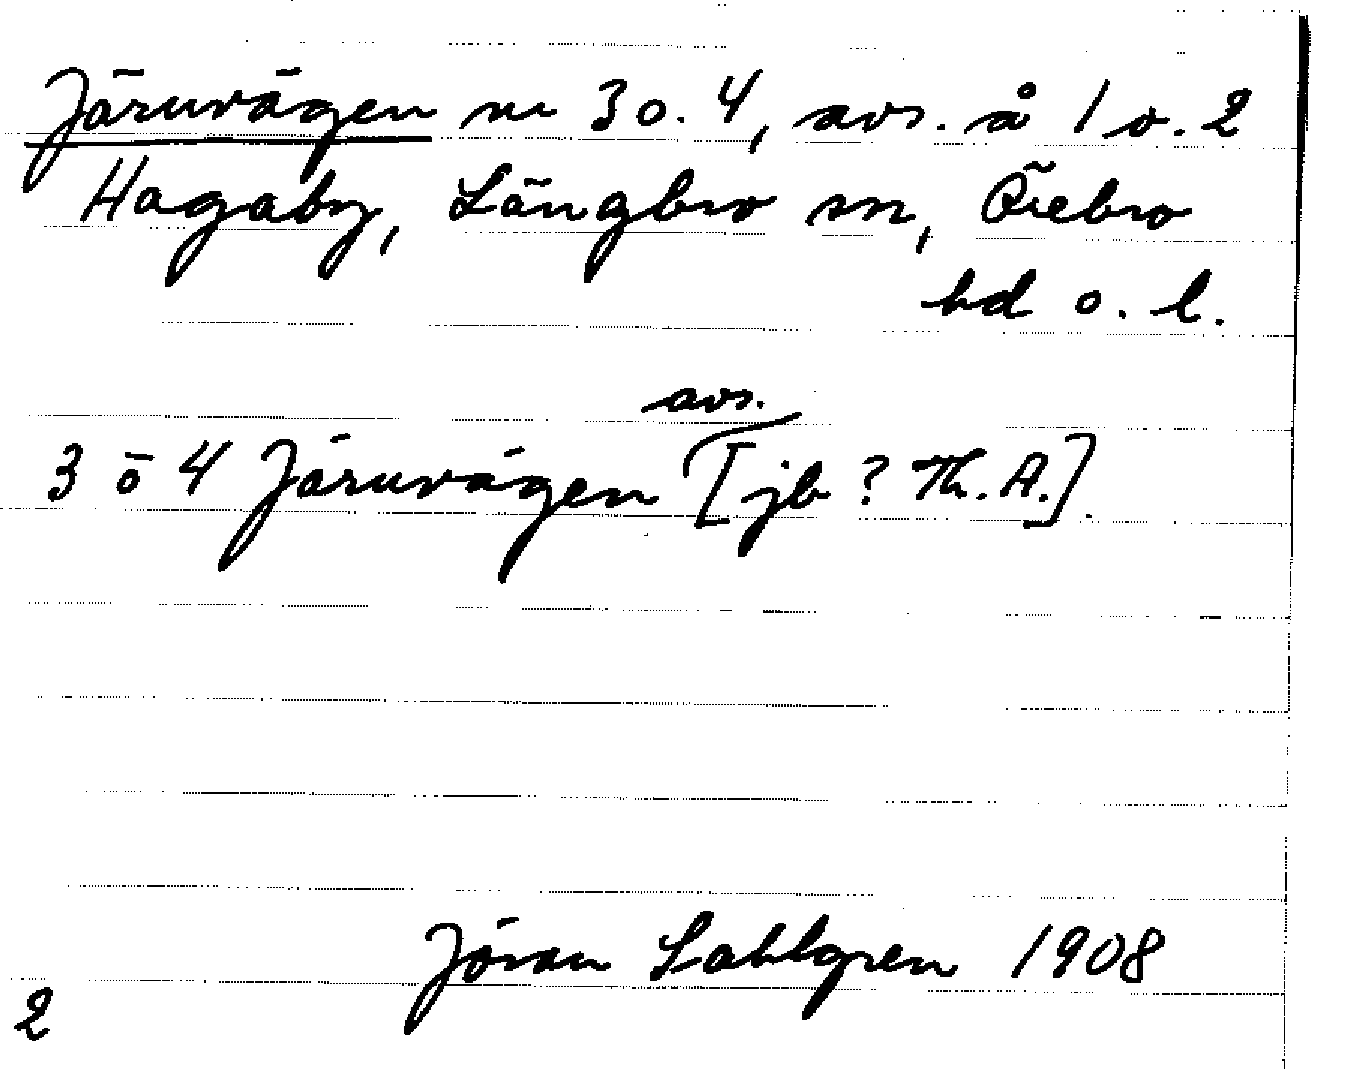 Järnvägen nr 3 o. 4, avs. å 1 o. 2
Hagaby, Längbro sn, Örebro
hd o. l.
avs.
3 o 4 Järnvägen [jb? Th. A.].
Jöran Sahlgren 1908
2